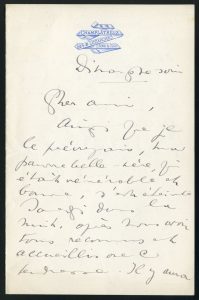 CHAMPLÂTREUX
Dimanche soir
Cher ami,
Ainsi que je
le prévoyais, ma
pauvre belle-mère, qui
était vénérable et
bonne, s'est éteinte
dans la
nuit, après nous avoir
tous reconnus et
accueillis avec
tendresse. Il y aura